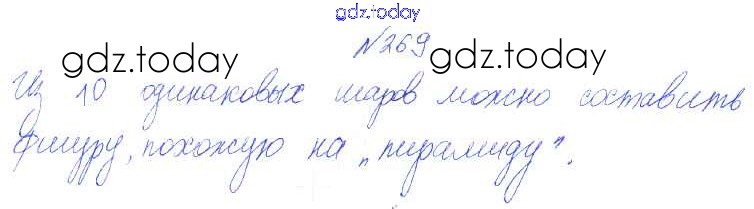 gdz.today
№269
gdz.today gdz.today
Из 10 одинаковых шаров можно составить
фигуру, похожую на „пирамиду".